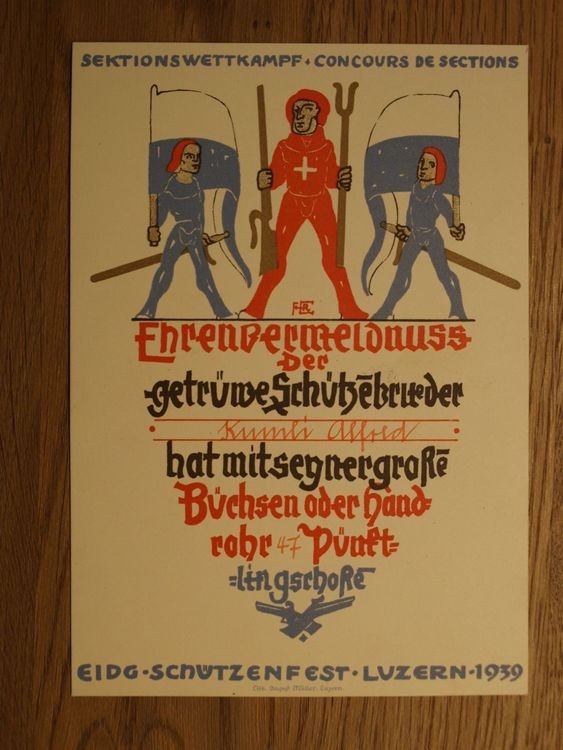 SEKTIONSWETTKAMPF · CONCOURS DE SECTIONS
Ehrenvermeldnuss
der
getrüwe Schützēbrueder
Kumli Alfred
hat mit seyner groſzē
Büchsen oder Hand=
rohr 47 Pünkt=
=lin gschoſzē
EIDG · SCHÜTZENFEST · LUZERN · 1939
Lith. August Müller, Luzern